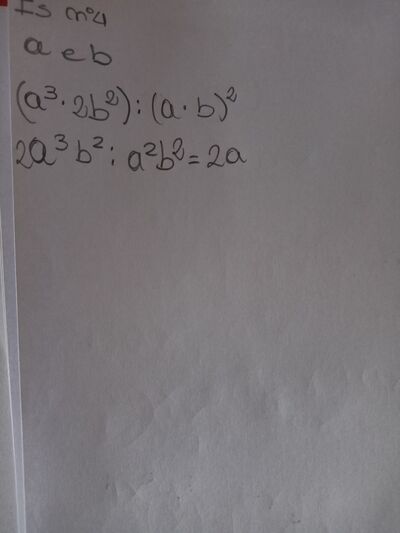 Es n°4
a e b
(a³·2b²):(a·b)²
2a³b²:a²b²=2a